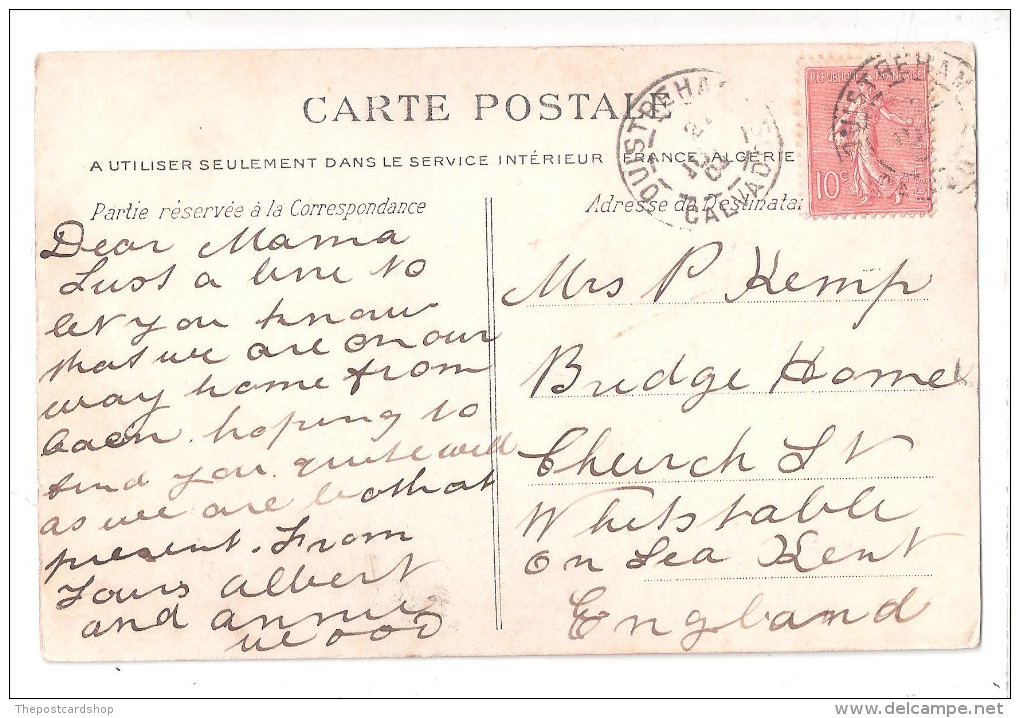 CARTE POSTALE
A UTILISER SEULEMENT DANS LE SERVICE INTÉRIEUR FRANCE, ALGÉRIE
Partie réservée à la Correspondance
Dear Mama
Just a line to
let you know
that we are on our
way home from
Caen. hoping to
find you quite well
as we are both at
present. From
Yours Albert
and Annie
Wood
Adresse du Destinatai
OUISTREHAM
CALVADOS
RÉPUBLIQUE FRANÇAISE
10c
OUISTREHAM
Mrs P Kemp
Bridge Home
Church St
Whitstable
on Sea Kent
England
Thepostcardshop
delcampe.net